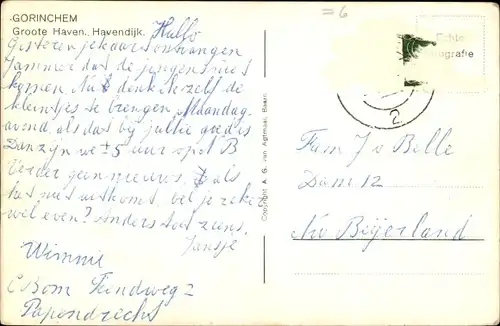 GORINCHEM
Groote Haven, Havendijk.
Hallo
Gisteren je kaart ontvangen
Jammer dat de jongens niet
komen. Nu denk ik zelf de
kleintjes te brengen. Maandag-
avond, als dat bij jullie goed is
Dan zijn we ± 5 uur op 't B
Verder geen nieuws, als
het niet uitkomt, bel je zeker
wel even? Anders tot ziens.
Jansje
Wimmie
C Bom
Papendrecht
=6
Echte
ografie
2
Copyright A. G. van Agtmaal, Baarn
Fam J v Belle
Dam 12
Nw Beijerland